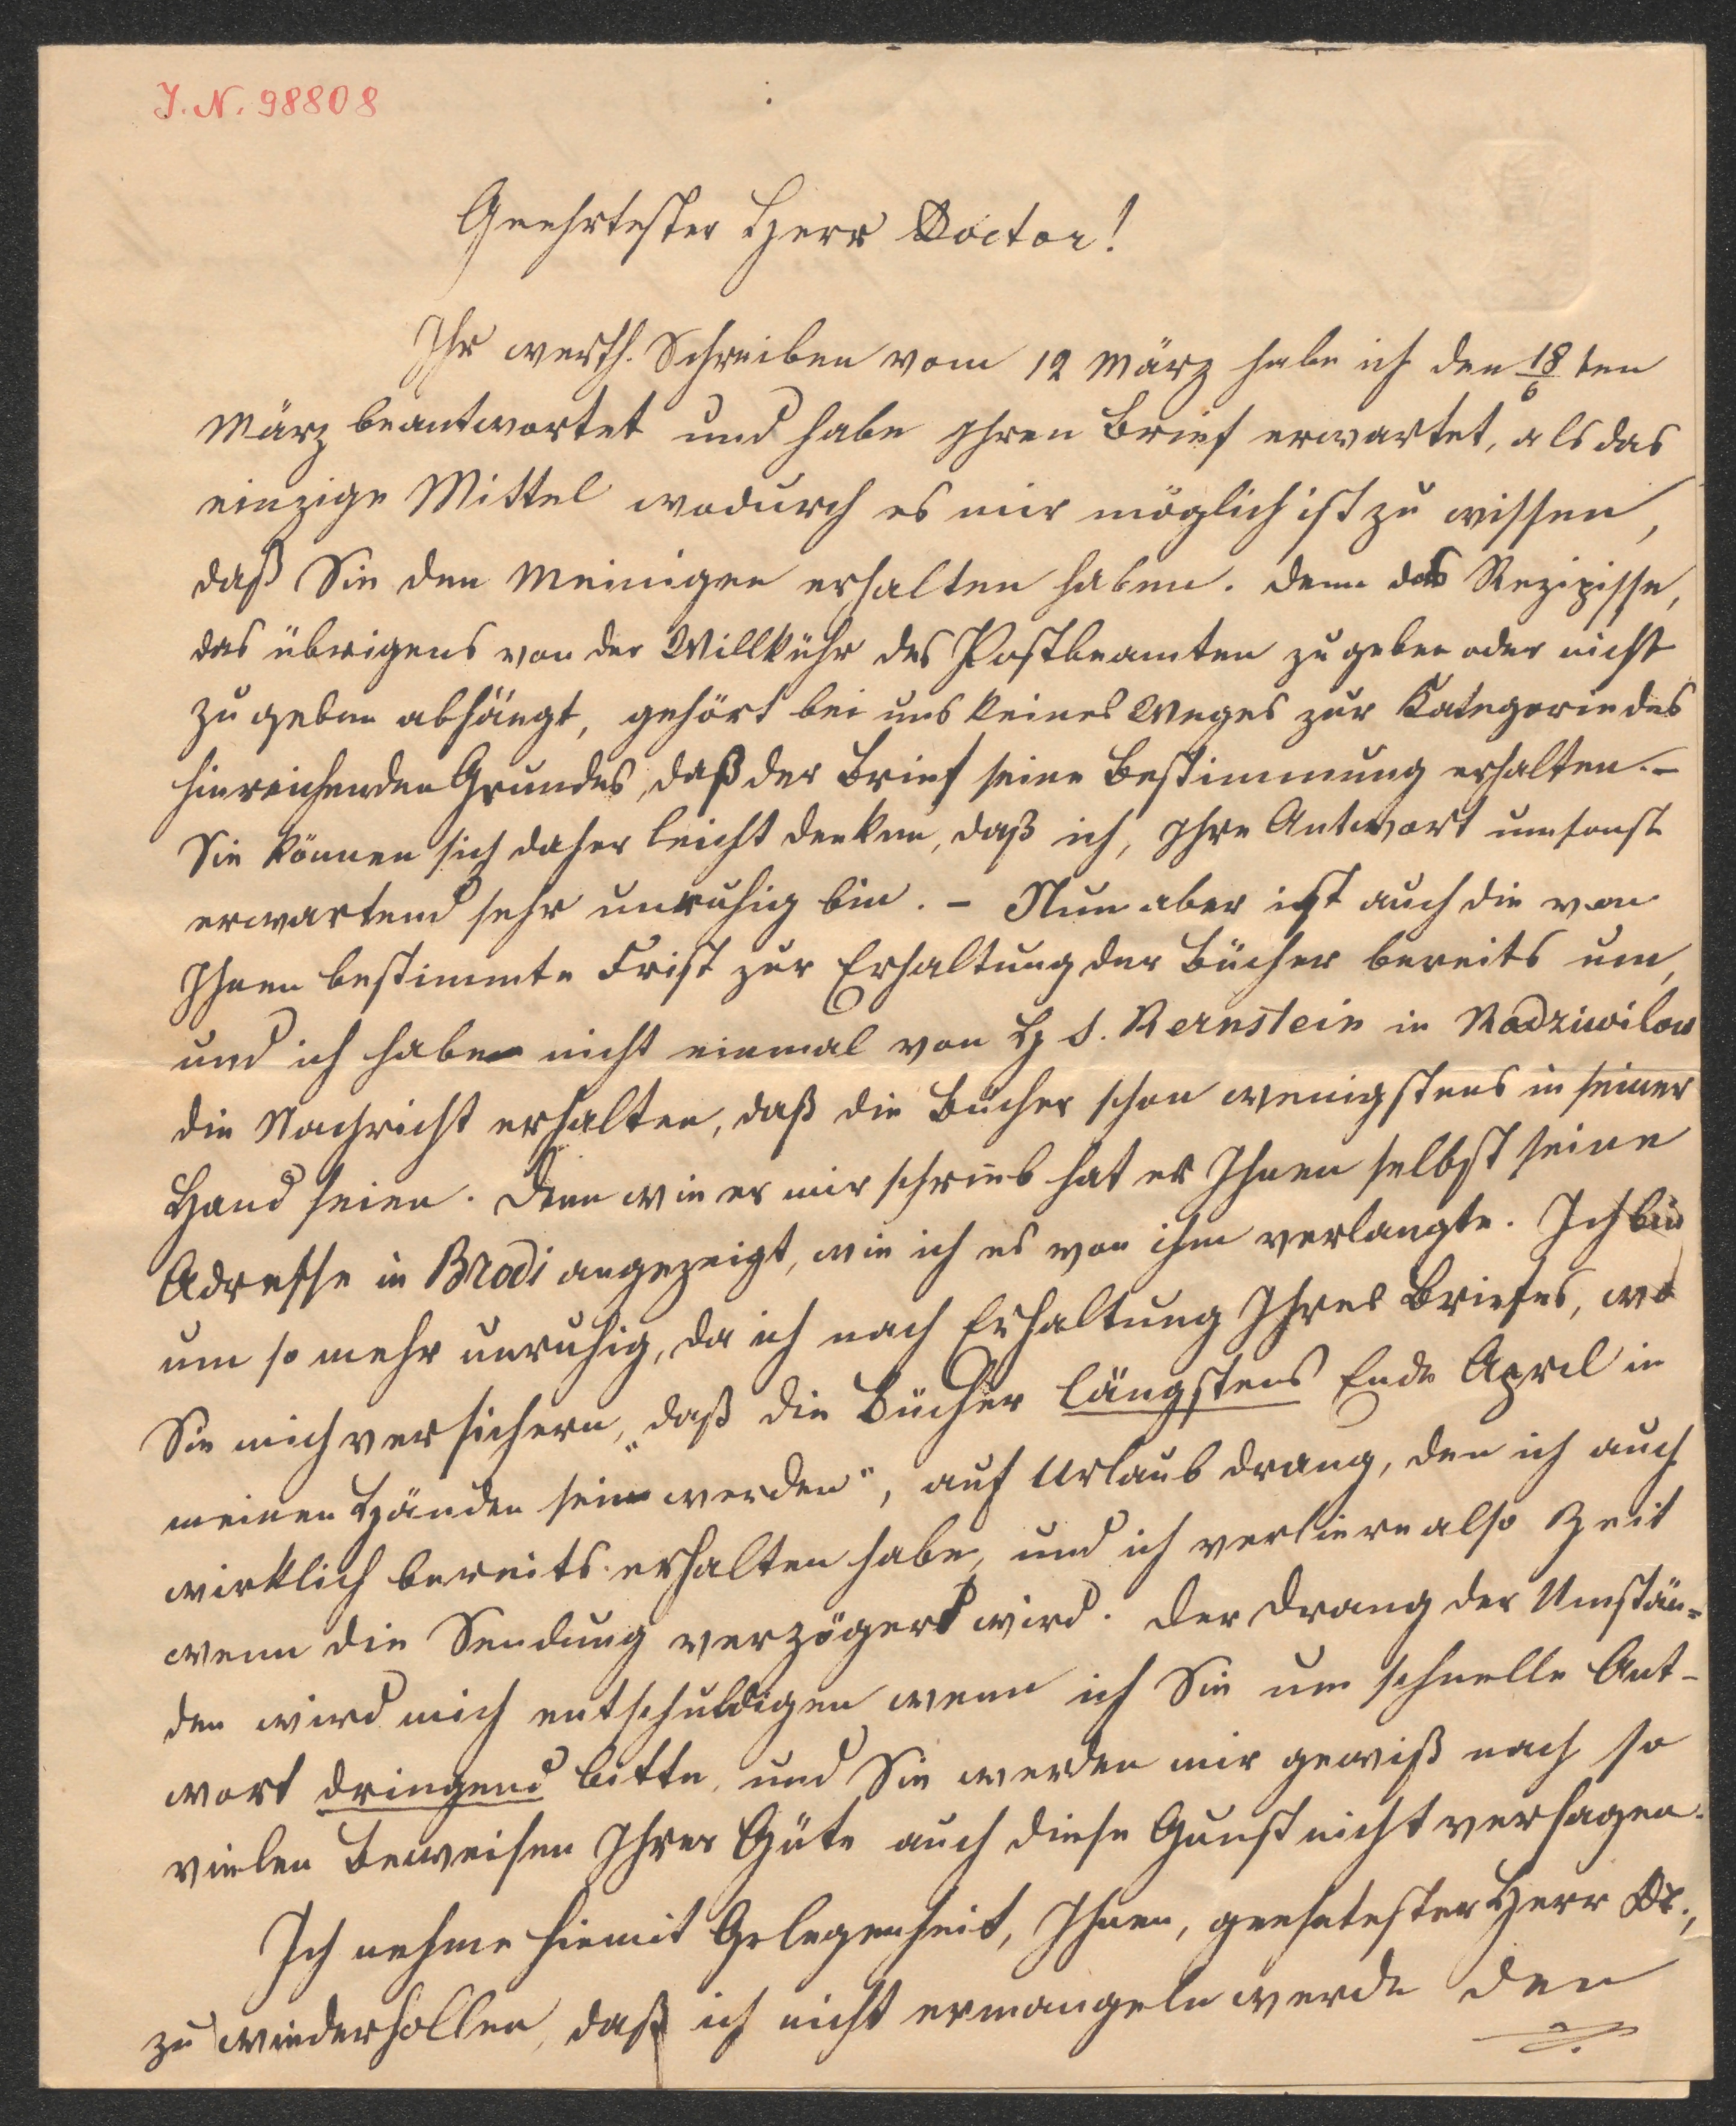 J. N. 98808
Geehrtester Herr Doctor!
Ihr werth. Schreiben vom 12 März habe ich den 18/6 ten
März beantwortet und habe Ihren Brief erwartet, als das
einzige Mittel wodurch es mir möglich ist zu wissen,
daß Sie den Meinigen erhalten haben. Denn das Rezipisse,
das übrigens von der Willkühr des Postbeamten zu geben oder nicht
zu geben abhängt, gehört bei uns keines Weges zur Kategorie des
hinreichenden Grundes, daß der Brief seine Bestimmung erhalten. –
Sie können sich daher leicht denken, daß ich, Ihre Antwort umsonst
erwartend sehr unruhig bin. – Nun aber ist auch die von
Ihnen bestimmte Frist zur Erhaltung der Bücher bereits um,
und ich habe nicht einmal von H S. Bernstein in Radziwilow
die Nachricht erhalten, daß die Bücher schon wenigstens in seiner
Hand seien. Denn wie er mir schrieb hat er Ihnen selbst seine
Adresse in Brodi angezeigt, wie ich es von ihm verlangte. Ich bin
um so mehr unruhig, da ich nach Erhaltung Ihres Briefes, wo
Sie mich versichern, „daß die Bücher längstens Ende April in
meinen Händen sein werden“, auf Urlaub drang, den ich auch
wirklich bereits erhalten habe, und ich verliere also Zeit
wenn die Sendung verzögert wird. Der Drang der Umstän=
den wird mich entschuldigen wenn ich Sie um schnelle Ant-
wort dringend bitte, und Sie werden mir gewiß nach so
vielen Beweisen Ihrer Güte auch diese Gunst nicht versagen.
Ich nehme hiemit Gelegenheit, Ihnen, geehrtester Herr Dr.,
zu wiederhollen, daß ich nicht ermangeln werde den